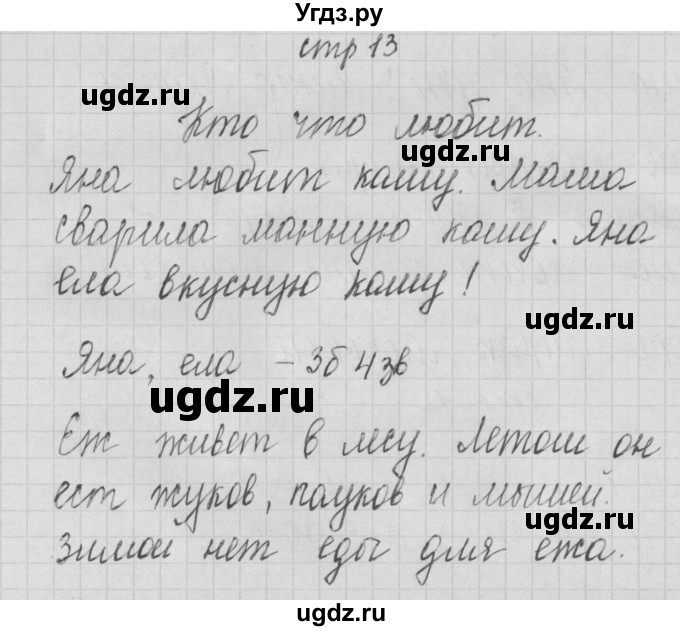 Угдз.ру
стр 13
ugdz.ru
Кто что любит.
ugdz.ru
Яна любит кашу. Маша
сварила манную кашу. Яна
ела вкусную кашу!
ugdz.ru
Яна, ела – 3б 4зв
ugdz.ru
Еж живет в лесу. Летом он
ugdz.ru
ест жуков, пауков и мышей.
ugdz.ru
Зимой нет еды для ежа.
ugdz.ru